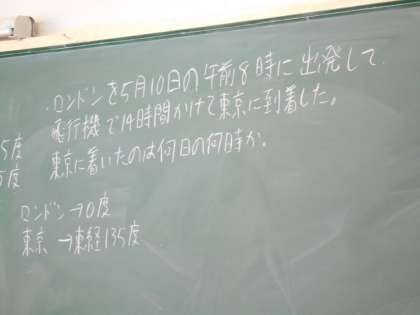 ロンドンを5月10日の午前8時に出発して
飛行機で14時間かけて東京に到着した。
5度
東京に着いたのは何日の何時か。
5度
ロンドン→0度
東京 →東経135度